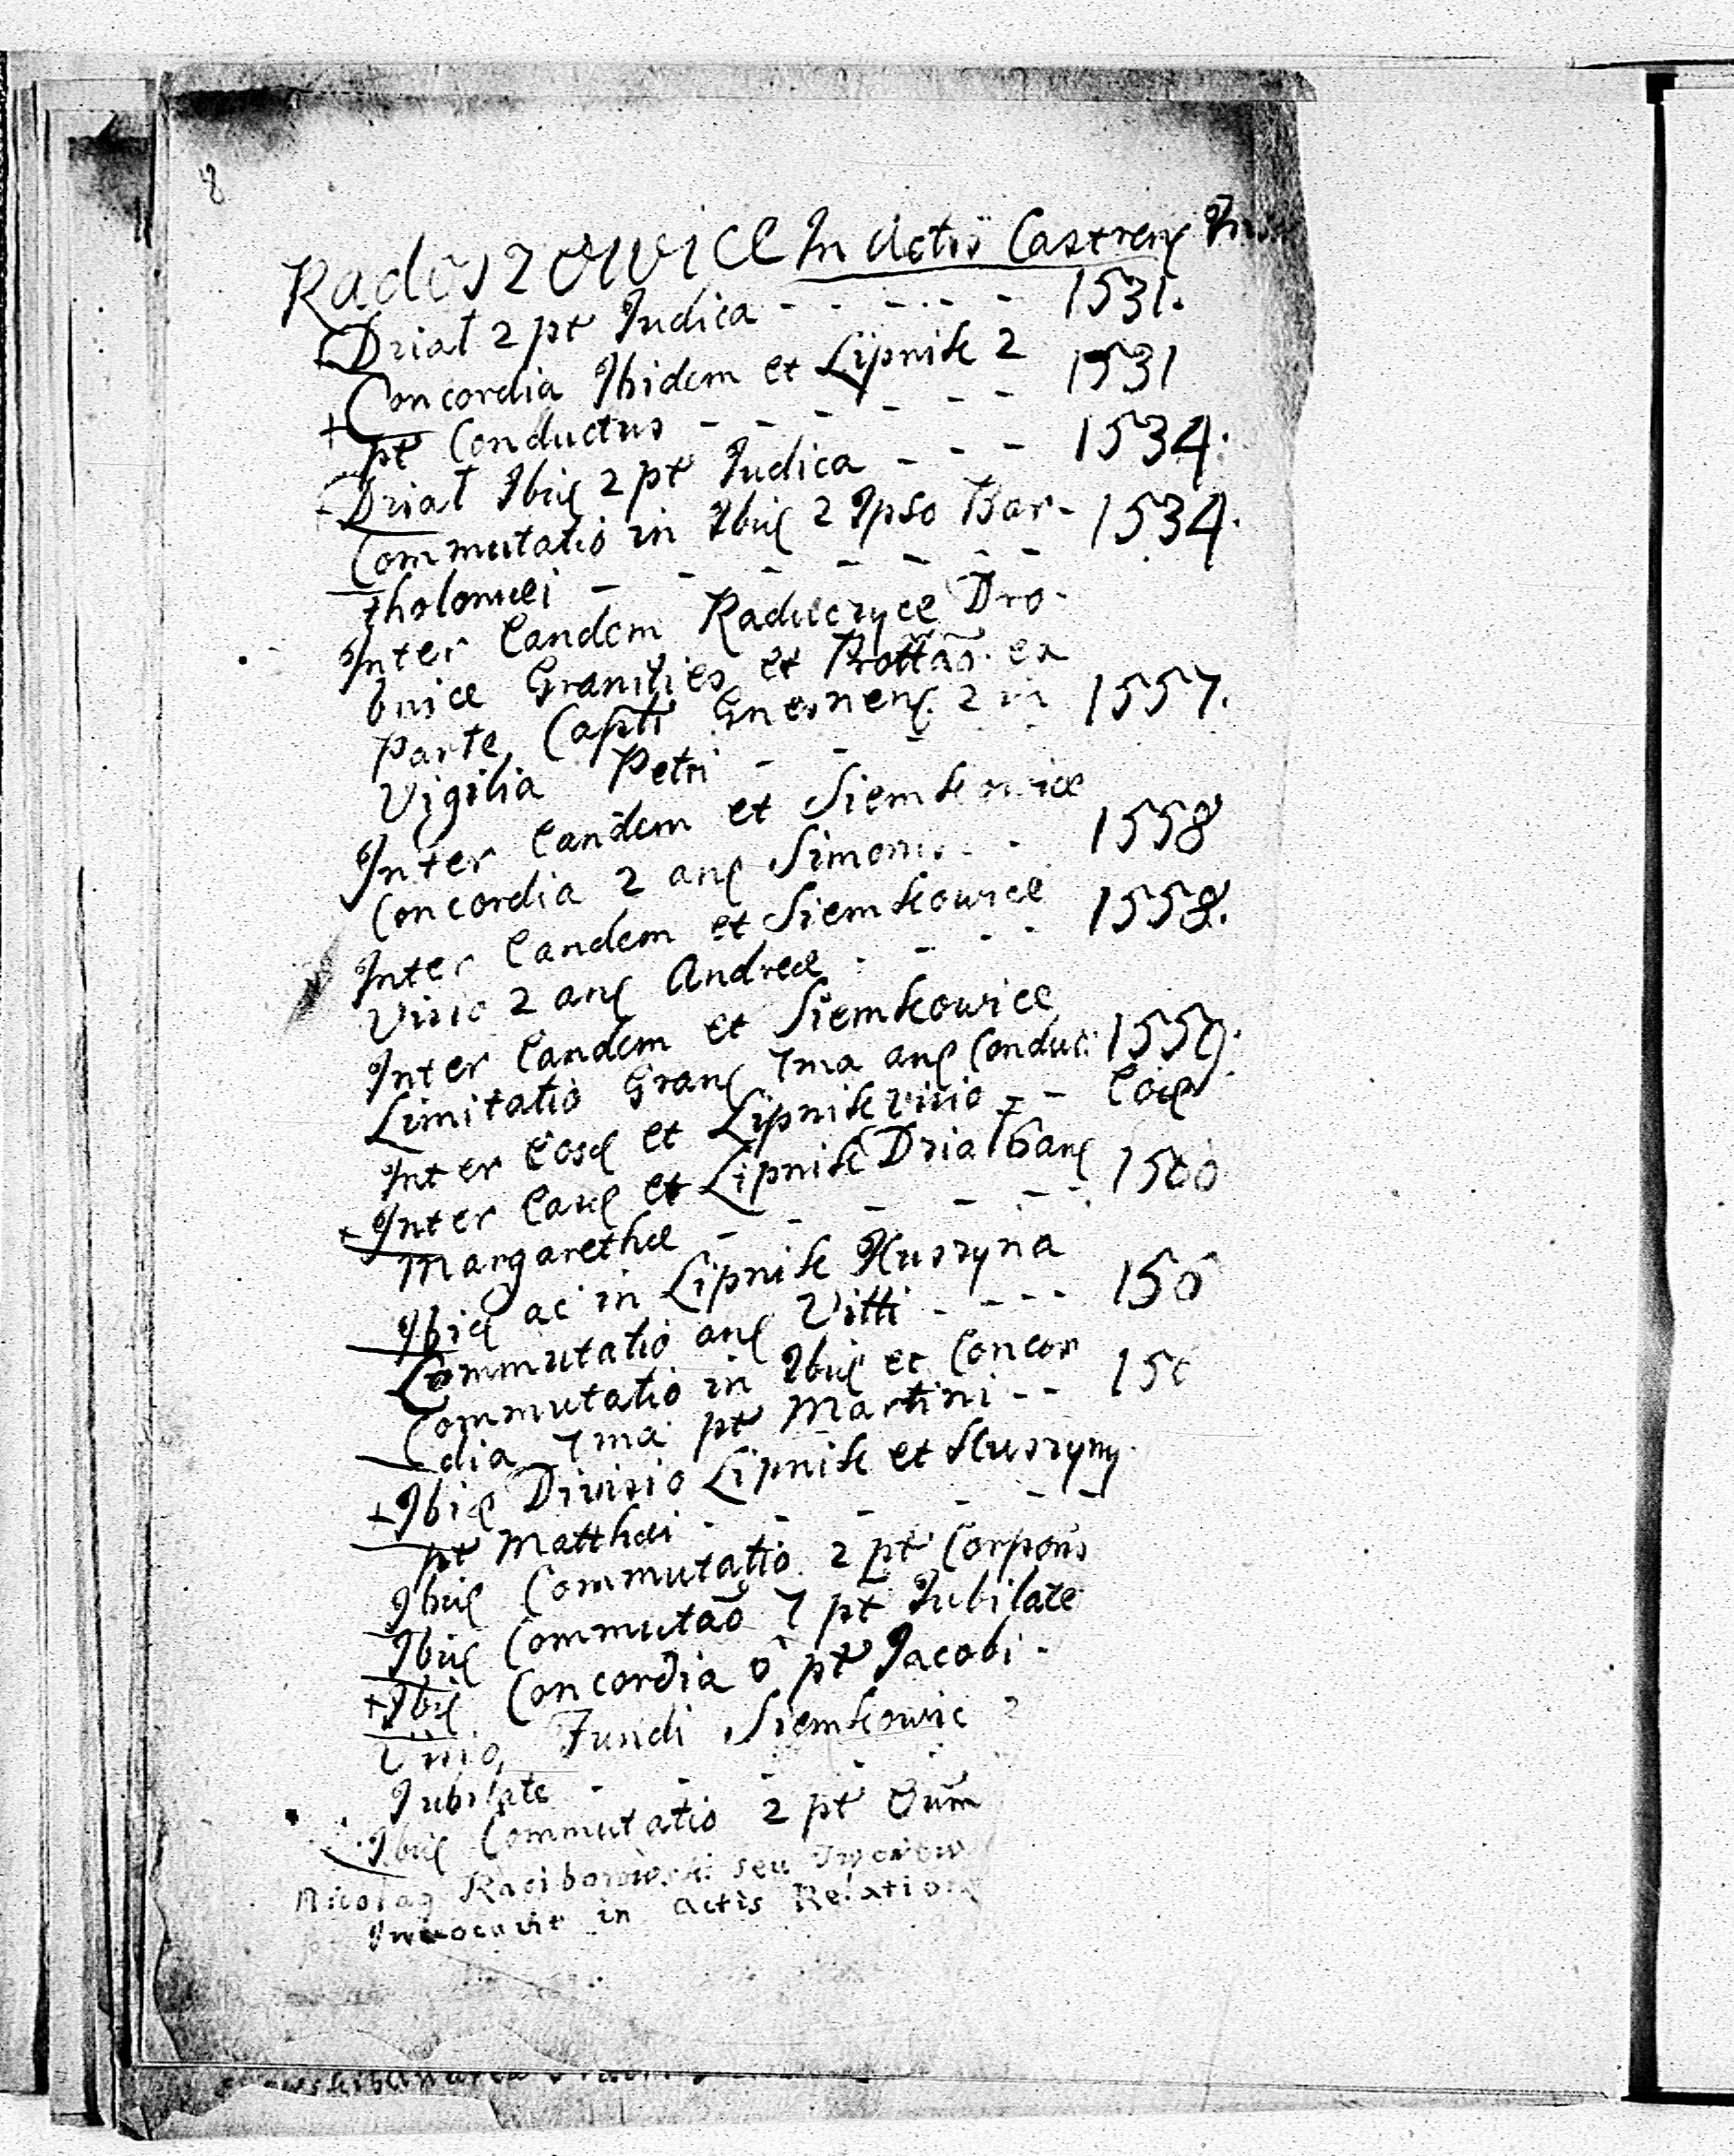 8
Radoszowice In Actis Castrens
Dziat 2 pt Judica - - - - - 1531.
Concordia Ibidem et Lipnik 2 1531
+ pt Conductus - - - - - -
Dziat Ibid 2 pt Judica - - - 1534.
Commutatio in Ibid 2 Ipso Bar- 1534.
tholomei - - - - - -
Inter Eandem Raduczyce Dro-
bnice Granities et Prottao ex
parte Capti Gnesnens 2 in 1557.
Vigilia Petri - - -
Inter Eandem et Siemkowice
Concordia 2 an Simonis - - 1558
Inter Eandem et Siemkowice
Visio 2 an Andreæ - - - 1558.
Inter Eandem et Siemkowice
Limitatio Gran 7ma an Conduc: 1559.
Inter Eosd et Lipnik visio - - Eod
+ Inter Ead et Lipnik Dziat 6 an 1560
Margarethæ - - - - - -
Ibid ac in Lipnik Kuszyna
Commutatio an Vitti - - - - 156
Commutatio in Ibid et Concor
dia 7ma pt Martini - - 156
+ Ibid Divisio Lipnik et Kuszyny
pt Matthæi - - - - -
Ibid Commutatio 2 pt Corporis
Ibid Commutao 7 pt Jubilate
+ Ibid Concordia 6 pt Jacobi -
Visio Fundi Siemkowic 2
Jubilate - - - - -
Ibid Commutatio 2 pt Oum
Nicolaq Raciborowski seu
in actis Relation